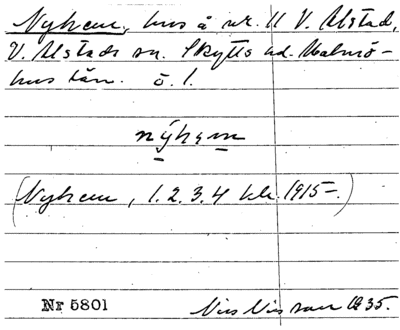 Nyhem, hus å nr. 11 V. Alstad,
V. Alstads sn. Skytts hd. Malmö-
hus län. ö. l.
nýhem
(Nyhem, 1. 2. 3. 4 kk. 1915-.)
Nr 5801 Nils Nilsson 1935.